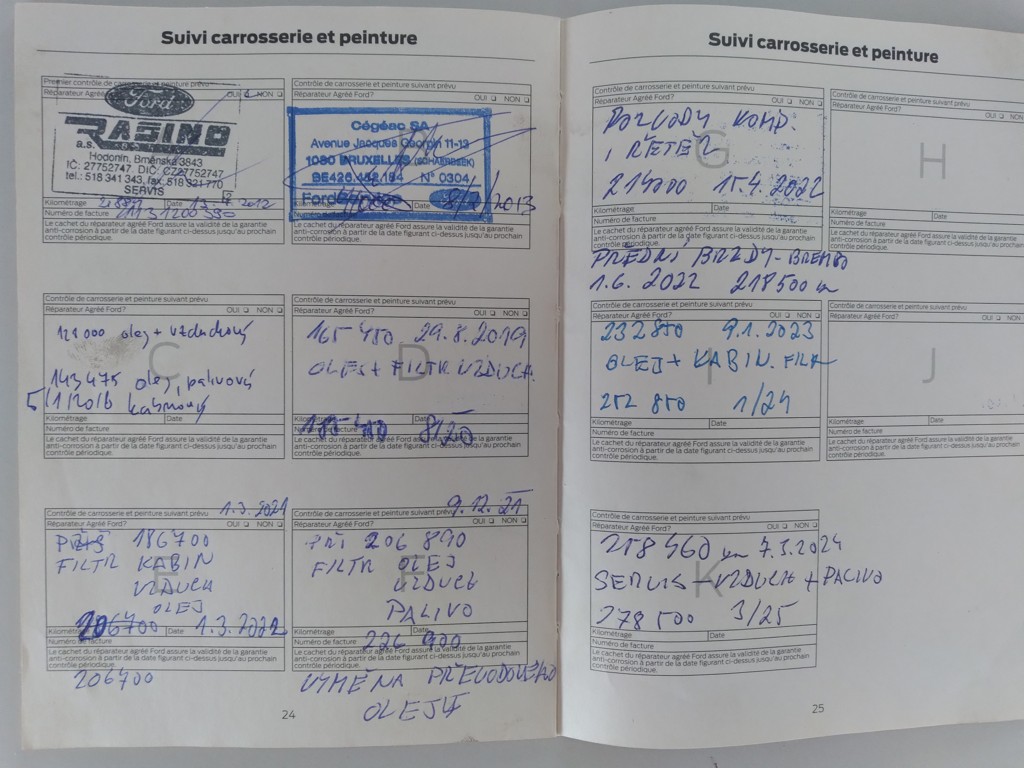 Suivi carrosserie et peinture
Premier contrôle de carrosserie et peinture prévu
Réparateur Agréé
OUI
Ford
RASINO
a.s.
Hodonín, Brněnská 3843
IČ: 27752747, DIČ: CZ27752747
tel.: 518 341 343, fax: 518 321 770
SERVIS
Kilométrage Date 2012
Numéro de facture
Le cachet du réparateur agréé Ford assure la validité de la garantie
anti-corrosion à partir de la date figurant ci-dessus jusqu'au prochain
contrôle périodique.
Contrôle de carrosserie et peinture suivant prévu
Réparateur Agréé Ford?
OUI NON
Cégéac SA
Avenue Jacques Georgin 11-13
1030 BRUXELLES (SCHAERBEEK)
BE426.432.194 N° 0304
Ford
Date 2013
Le cachet du réparateur agréé Ford assure la validité de la garantie
anti-corrosion à partir de la date figurant ci-dessus jusqu'au prochain
contrôle périodique.
Contrôle de carrosserie et peinture suivant prévu
Réparateur Agréé Ford? OUI NON
C
olej + vzduchový
143 475 olej, palivový
5/1/2016 kabinový
Kilométrage Date
Numéro de facture
Le cachet du réparateur agréé Ford assure la validité de la garantie
anti-corrosion à partir de la date figurant ci-dessus jusqu'au prochain
contrôle périodique.
Contrôle de carrosserie et peinture suivant prévu
Réparateur Agréé Ford? OUI NON
D
29.8.2019
OLEJ + FILTR VZDUCH.
Kilométrage Date
Numéro de facture
Le cachet du réparateur agréé Ford assure la validité de la garantie
anti-corrosion à partir de la date figurant ci-dessus jusqu'au prochain
contrôle périodique.
1.3.2021
Contrôle de carrosserie et peinture suivant prévu
Réparateur Agréé Ford? OUI NON
E
186700
FILTR KABIN
VZDUCH
OLEJ
206700 1.3.2022
Kilométrage Date
Numéro de facture
Le cachet du réparateur agréé Ford assure la validité de la garantie
anti-corrosion à partir de la date figurant ci-dessus jusqu'au prochain
contrôle périodique.
206700
9.12.21
Contrôle de carrosserie et peinture suivant prévu
Réparateur Agréé Ford? OUI NON
F
PŘI 206 890
FILTR OLEJ
VZDUCH
PALIVO
Kilométrage Date
226 900
Numéro de facture
Le cachet du réparateur agréé Ford assure la validité de la garantie
anti-corrosion à partir de la date figurant ci-dessus jusqu'au prochain
contrôle périodique.
VÝMĚNA PŘEVODOVÉHO
OLEJE
24
Suivi carrosserie et peinture
Contrôle de carrosserie et peinture suivant prévu
Réparateur Agréé Ford?
OUI NON
G
ROZVODY KOMP.
I ŘETĚZ
214000 15.4.2022
Kilométrage Date
Numéro de facture
Le cachet du réparateur agréé Ford assure la validité de la garantie
anti-corrosion à partir de la date figurant ci-dessus jusqu'au prochain
contrôle périodique.
PŘEDNÍ BRZDY - BREMBO
1.6. 2022 218500 km
Contrôle de carrosserie et peinture suivant prévu
Réparateur Agréé Ford?
OUI NON
H
Kilométrage Date
Numéro de facture
Le cachet du réparateur agréé Ford assure la validité de la garantie
anti-corrosion à partir de la date figurant ci-dessus jusqu'au prochain
contrôle périodique.
Contrôle de carrosserie et peinture suivant prévu
Réparateur Agréé Ford? OUI NON
I
232 850 9.1.2023
OLEJ + KABIN. FILTR
252 850 1/24
Kilométrage Date
Numéro de facture
Le cachet du réparateur agréé Ford assure la validité de la garantie
anti-corrosion à partir de la date figurant ci-dessus jusqu'au prochain
contrôle périodique.
Contrôle de carrosserie et peinture suivant prévu
Réparateur Agréé Ford? OUI NON
J
Kilométrage Date
Numéro de facture
Le cachet du réparateur agréé Ford assure la validité de la garantie
anti-corrosion à partir de la date figurant ci-dessus jusqu'au prochain
contrôle périodique.
Contrôle de carrosserie et peinture suivant prévu
Réparateur Agréé Ford? OUI NON
K
km 7.3.2024
SERVIS - VZDUCH + PALIVO
278 500 3/25
Kilométrage Date
Numéro de facture
Le cachet du réparateur agréé Ford assure la validité de la garantie
anti-corrosion à partir de la date figurant ci-dessus jusqu'au prochain
contrôle périodique.
25